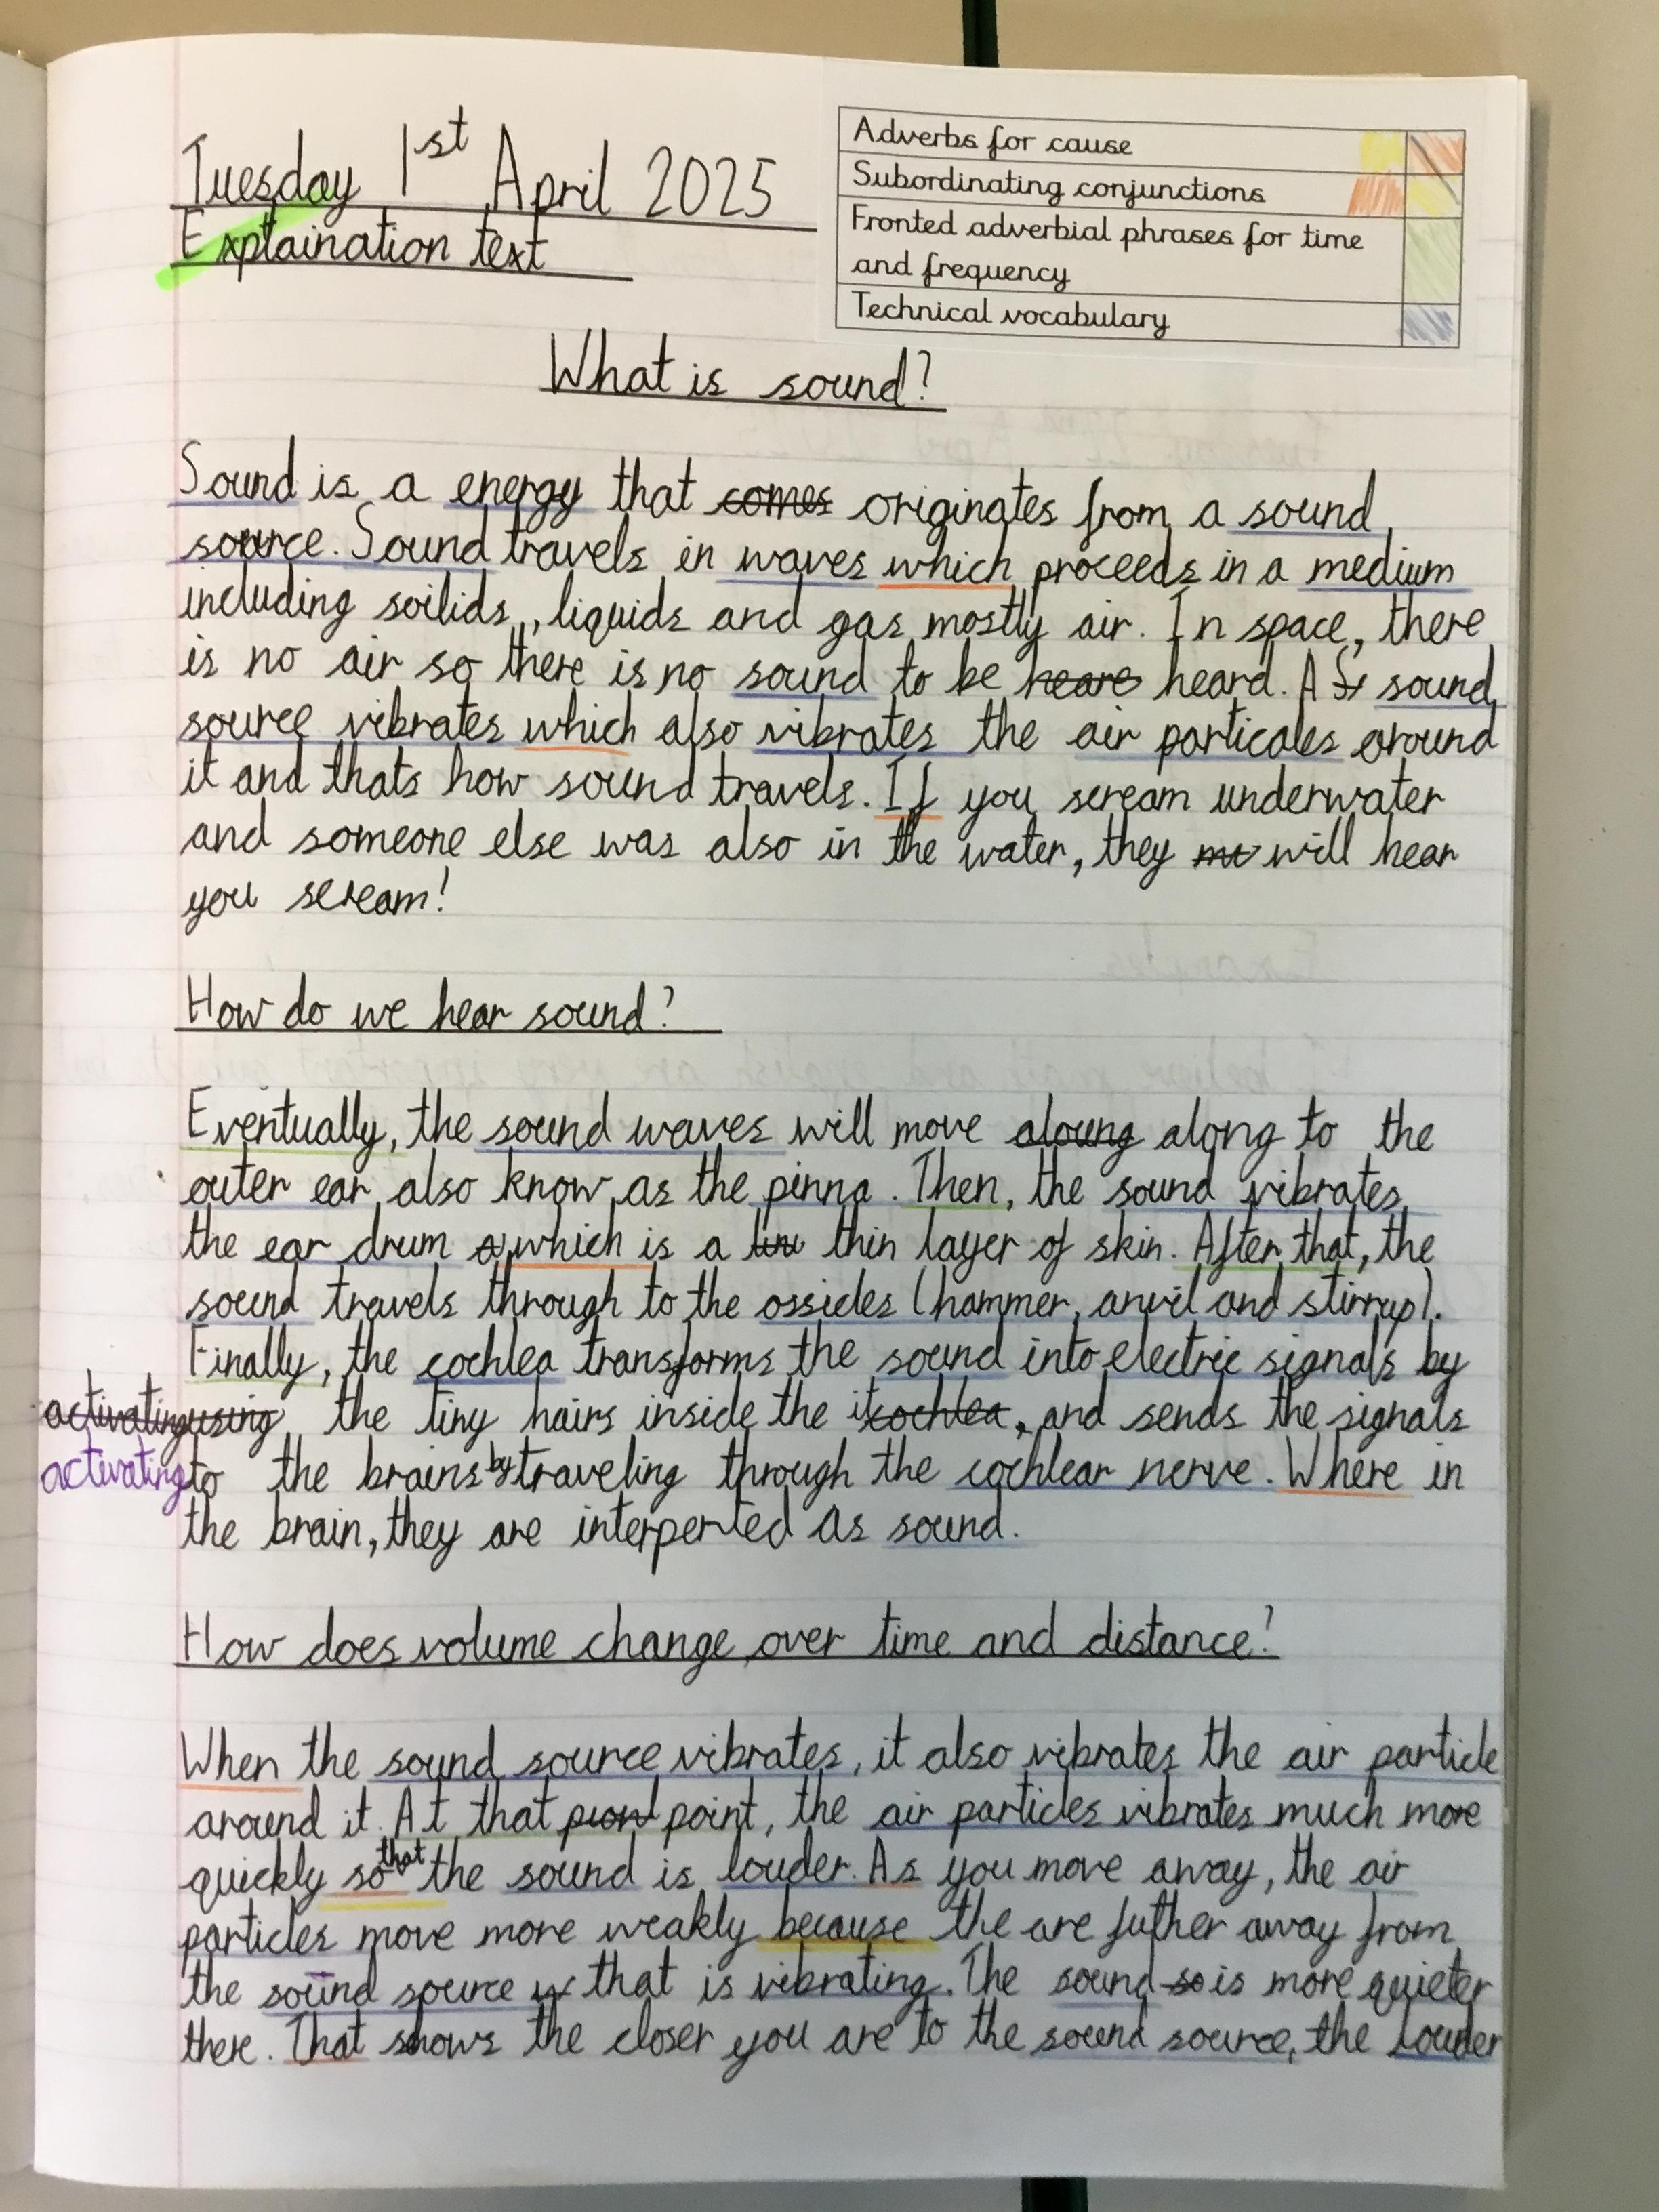 Tuesday 1st April 2025
Explaination text
Adverbs for cause
Subordinating conjunctions
Fronted adverbial phrases for time
and frequency
Technical vocabulary
What is sound?
Sound is a energy that comes originates from a sound
source. Sound travels in waves which proceeds in a medium
including soilids, liquids and gas mostly air. In space, there
is no air so there is no sound to be heare heard. A sound
source vibrates which also vibrates the air particales around
it and thats how sound travels. If you scream underwater
and someone else was also in the water, they will hear
you scream!
How do we hear sound?
Eventually, the sound waves will move aloung along to the
outer ear, also know as the pinna. Then, the sound vibrates
the ear drum which is a thin layer of skin. After that, the
sound travels through to the ossicles (hammer, anvil and stirrup).
Finally, the cochlea transforms the sound into electric signals by
activating using the tiny hairs inside the it cochlea, and sends the signals
activating to the brains by traveling through the cochlear nerve. Where in
the brain, they are interperted as sound.
How does volume change over time and distance?
When the sound source vibrates, it also vibrates the air particle
around it. At that point, the air particles vibrates much more
quickly so that the sound is louder. As you move away, the air
particles move more weakly because the are futher away from
the sound source that is vibrating. The sound so is more quieter
there. That shows the closer you are to the sound source, the louder